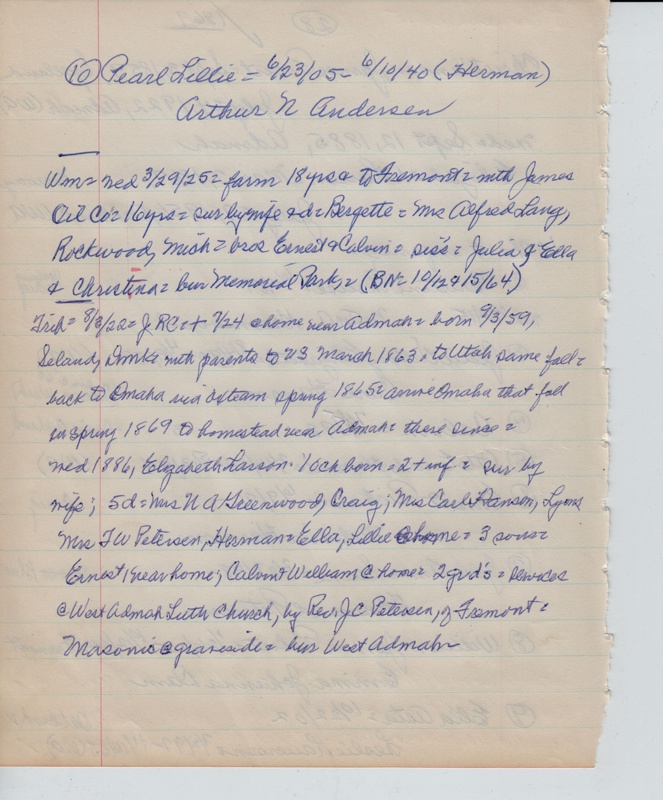 ⑩ Pearl Lillie = 6/23/05 - 6/10/40 (Herman)
Arthur N Andersen
Wm = med 3/29/25 = farm 18 yrs & to Fremont = mth James
Oil Co = 16 yrs = sur by wife & d = Bergette = Mrs Alfred Lang,
Rockwood, Mich = bros Ernest & Calvin = sis's = Julia & Ella
& Christina = bur Memorial Park = (BN = 10/12 & 15/64)
Trib = 8/3/22 = J RC 7/24 @ home near Admah = born 9/3/59,
Seland, Dmk = mth parents to US March 1863 = to Utah same fall =
back to Omaha via ox team spring 1865 = arrive Omaha that fall
in spring 1869 to homestead near Admah = there since =
med 1886, Elizabeth Larson · 10 ch born = 2 + inf = sur by
wife; 5 d = Mrs N A Greenwood, Craig; Mrs Carl Hanson, Lyons
Mrs F W Petersen, Herman = Ella, Lillie @ home = 3 sons =
Ernest near home; Calvin & William @ home = 2 grd's = services
@ West Admah Luth Church, by Rev J C Petersen, of Fremont =
Masonic @ graveside = bur West Admah